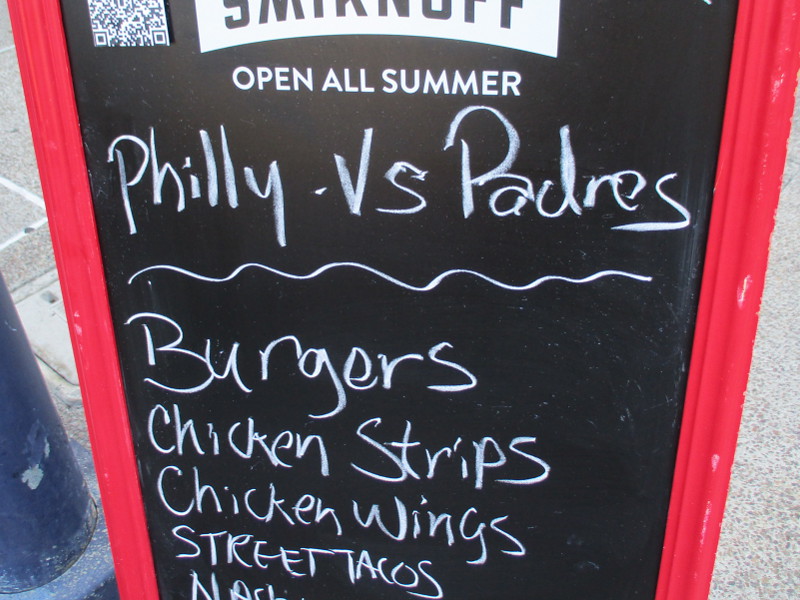 SMIRNOFF
OPEN ALL SUMMER
Philly - Vs Padres
Burgers
Chicken Strips
Chicken Wings
STREET TACOS